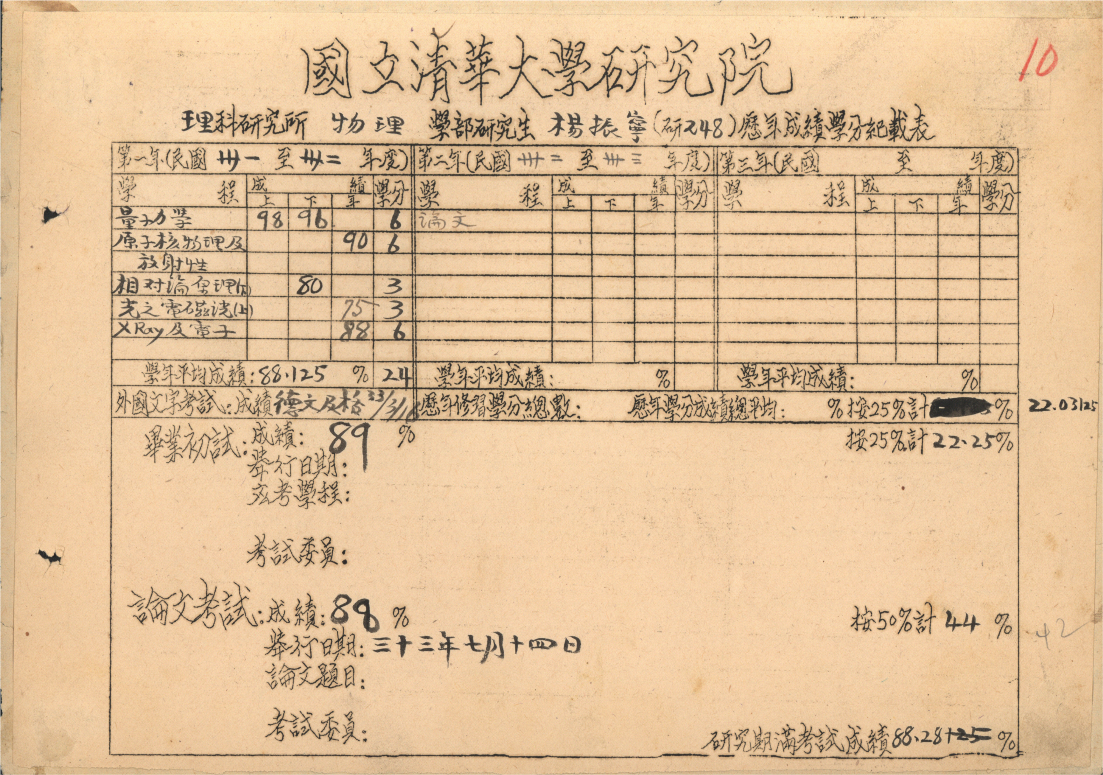 10
國立清華大學研究院
理科研究所 物理 學部研究生 楊振寧(研248)歷年成績學分紀載表
第一年(民國 卅一 至 卅二 年度) 第二年(民國 卅二 至 卅三 年度) 第三年(民國 至 年度)
學程 成績 上 下 年 學分 學程 成績 上 下 年 學分 學程 成績 上 下 年 學分
量子力學 98 96 6 論文
原子核物理及 90 6
放射性
相对論原理(下) 80 3
光之電磁说(上) 75 3
X Ray及電子 88 6
學年平均成績:88.125 % 24 學年平均成績: % 學年平均成績: %
外國文字考試:成績德文及格33/3/18 歷年修習學分總數: 歷年學分成績總平均: % 按25%計 % 22.03125
畢業初試:成績:89 % 按25%計22.25%
舉行日期:
考學程:
考試委員:
論文考試:成績:88 % 按50%計 44 % 42
舉行日期:三十三年七月十四日
論文題目:
考試委員:
研究期滿考試成績88.28125 %